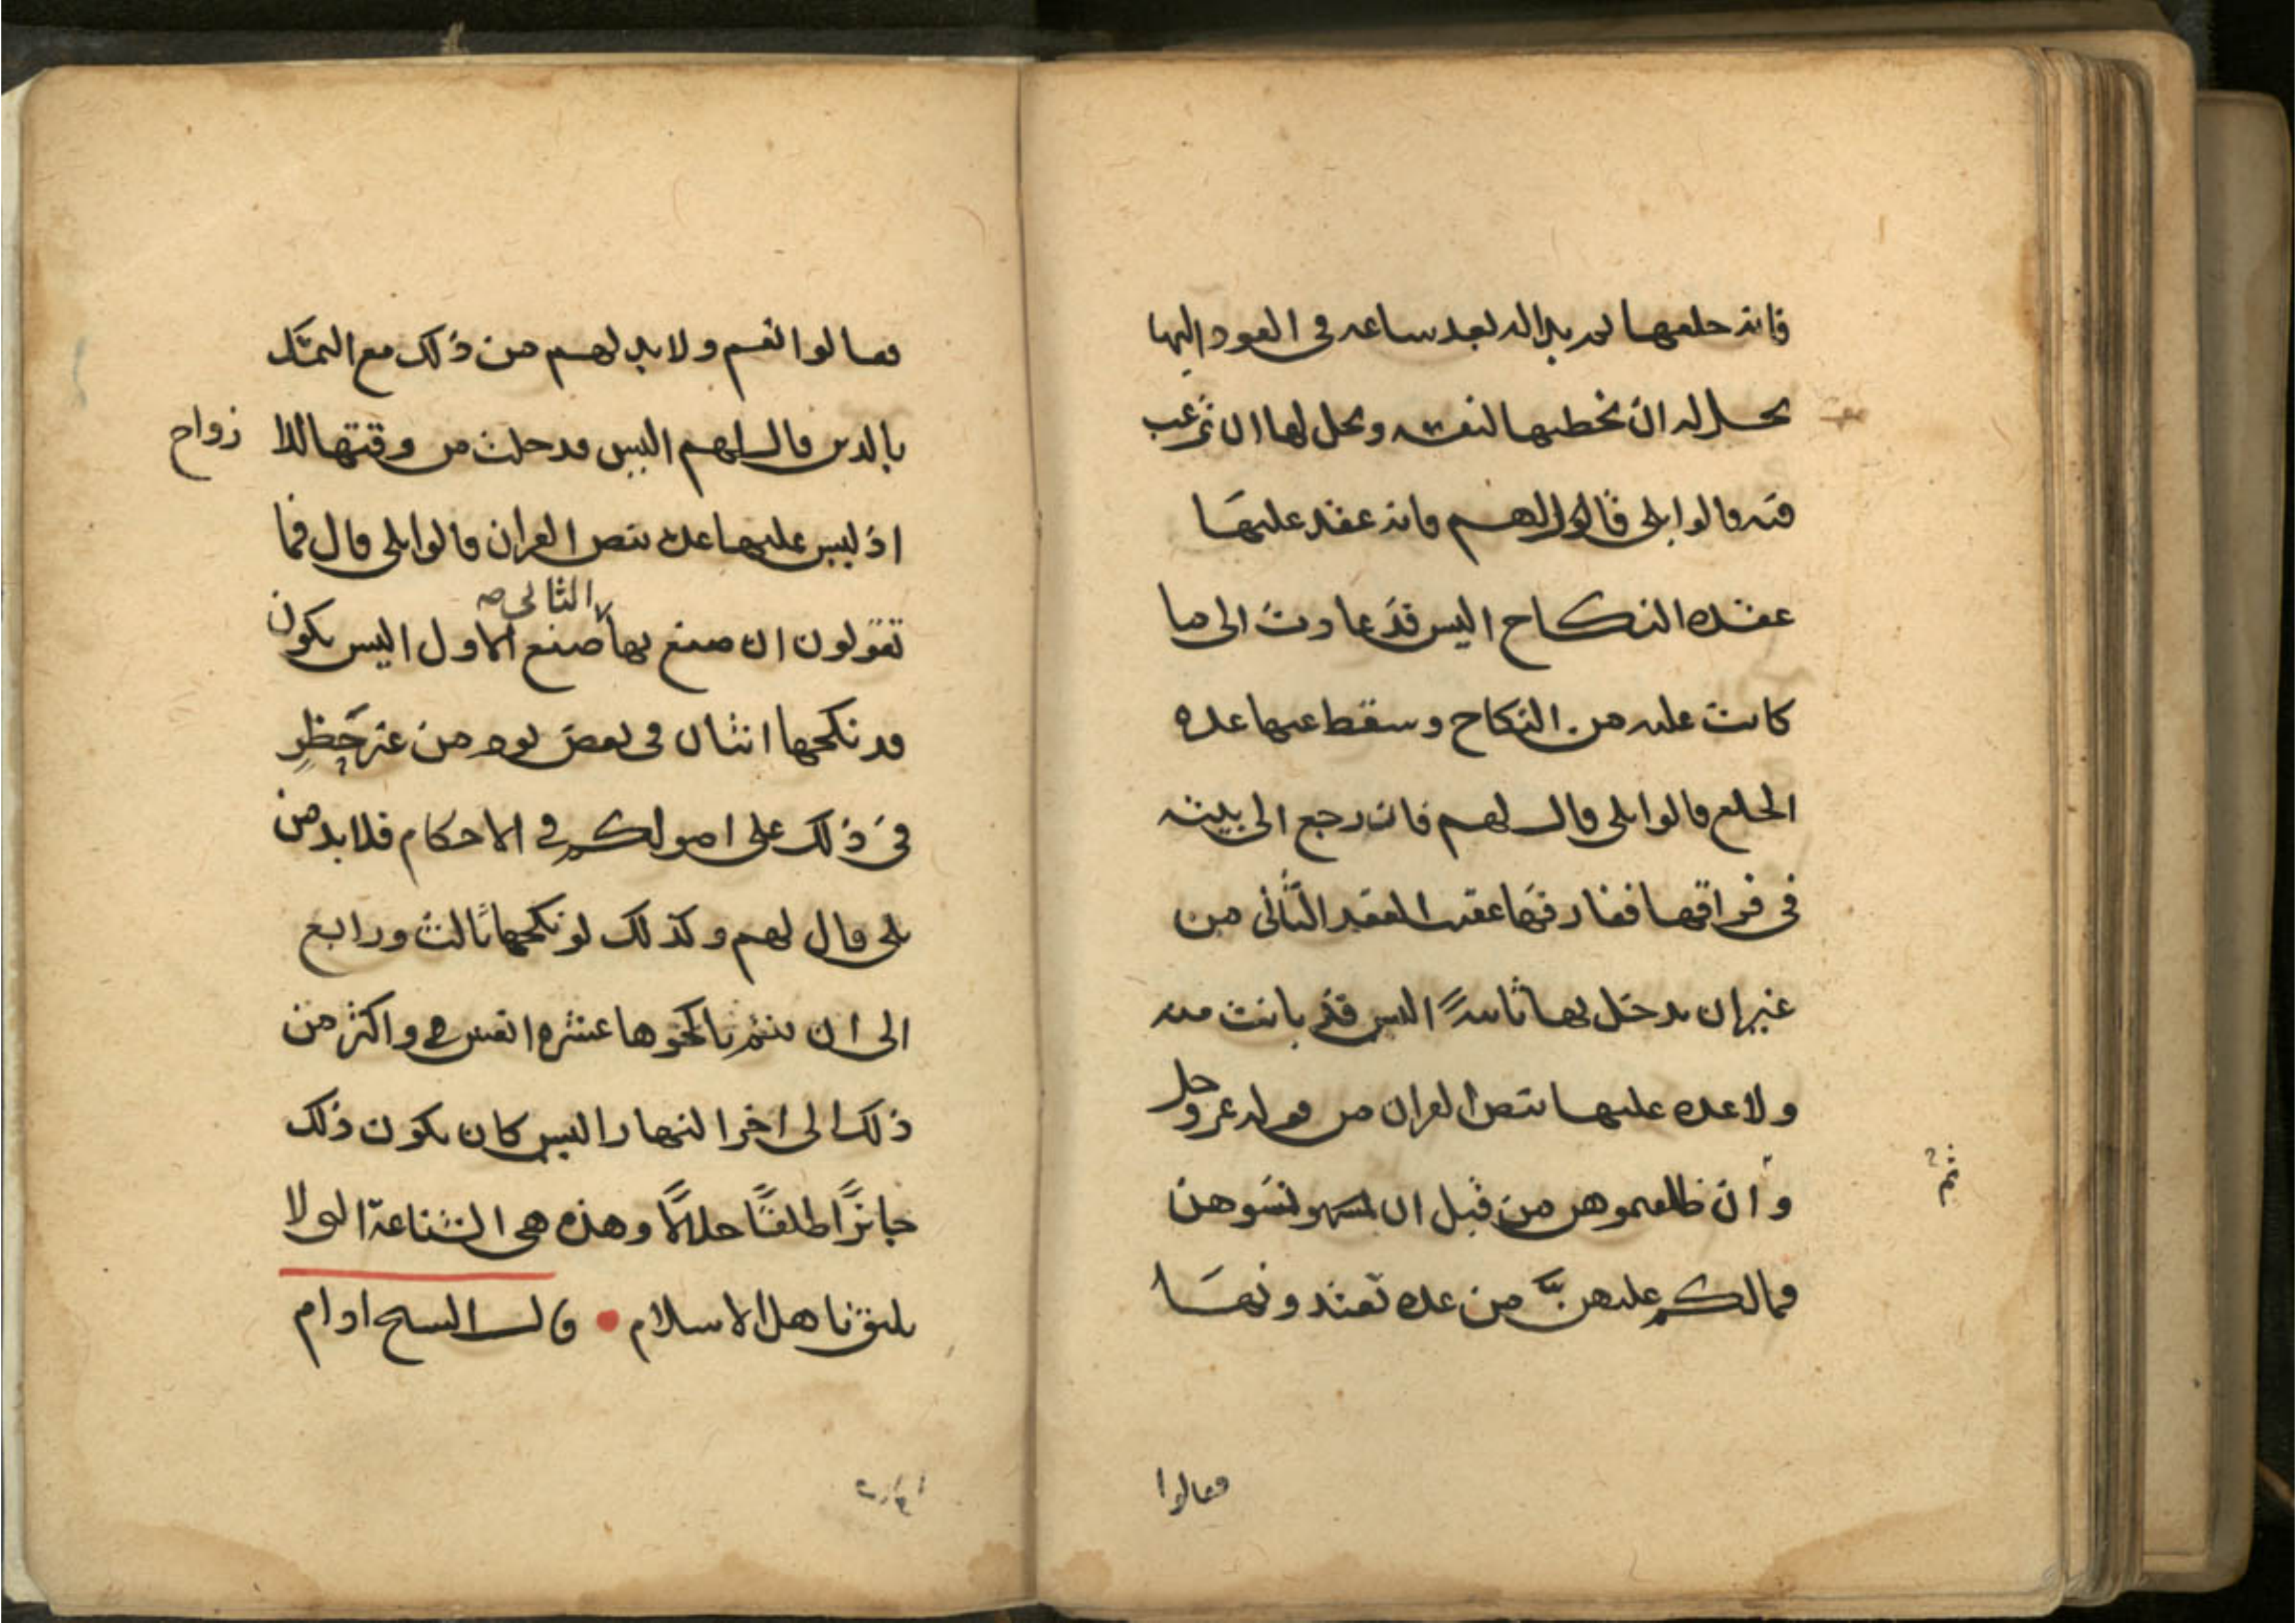 فانه خلعها ثم بدا له بعد ساعه فى العود اليها
يحل له ان يخطبها لنفسه ويحل لها ان ترغب
فيه قالوا بلى قال لهم فانه عقد عليها
عقده النكاح اليس قد عادت الى ما
كانت عليه من النكاح وسقط عنها عده
الخلع قالوا بلى قال لهم فان رجع الى نيته
فى فراقها ففارقها عقيب العقد الثانى من
غير ان يدخل بها ثانيةً اليس قد بانت منه
ولا عده عليها بنص القران من قوله عز وجل
و ان طلقتموهن من قبل ان تمسوهن
ثم
فمالكم عليهن من عده تعتدونها
فقالوا
فقالوا نعم ولا بد لهم من ذلك مع التمسك
بالدين قال لهم اليس قد حلت من وقتها للازواج
اذ ليس عليها عده بنص القران قالوا بلى قال فما
تقولون ان صنع بها الثانى صنع الاول اليس يكون
قد نكحها اثنان فى بعض يوم من غير حظرٍ
فى ذلك على اصولكم فى الاحكام فلا بد من
بلى قال لهم وكذلك لو نكحها ثالث ورابع
الى ان يتم ناكحوها عشره انفس واكثر من
ذلك الى اخر النهار اليس كان يكون ذلك
جايزًا طلقًا حلالًا وهذه هى الشناعة التى لا
يليق باهل الاسلام • قال الشيخ ادام